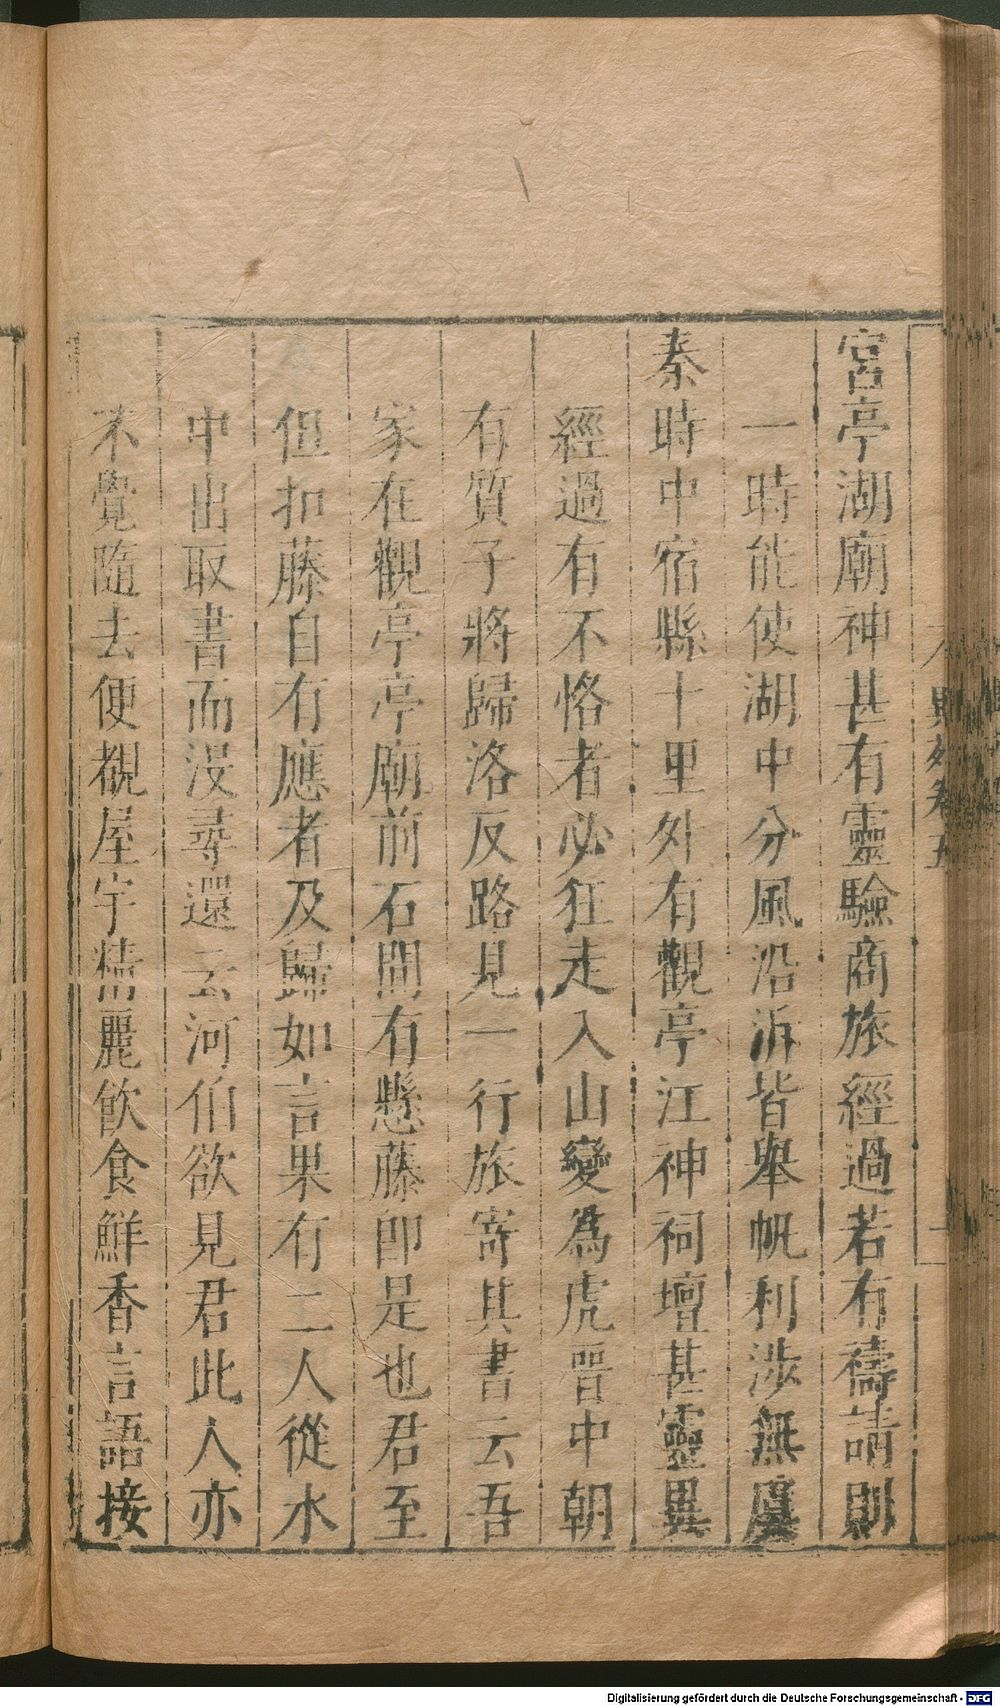 宮亭湖廟神甚有靈驗商旅經過若有禱請則
一時能使湖中分風沿泝皆舉帆利涉無虞
秦時中宿縣十里外有觀亭江神祠壇甚靈異
經過有不恪者必狂走入山變為虎晉中朝
有質子將歸洛反路見一行旅寄其書云吾
家在觀亭亭廟前石間有懸藤即是也君至
但扣藤自有應者及歸如言果有二人從水
中出取書而沒尋還云河伯欲見君此人亦
不覺隨去便覩屋宇精麗飲食鮮香言語接
Digitalisierung gefördert durch die Deutsche Forschungsgemeinschaft - DFG